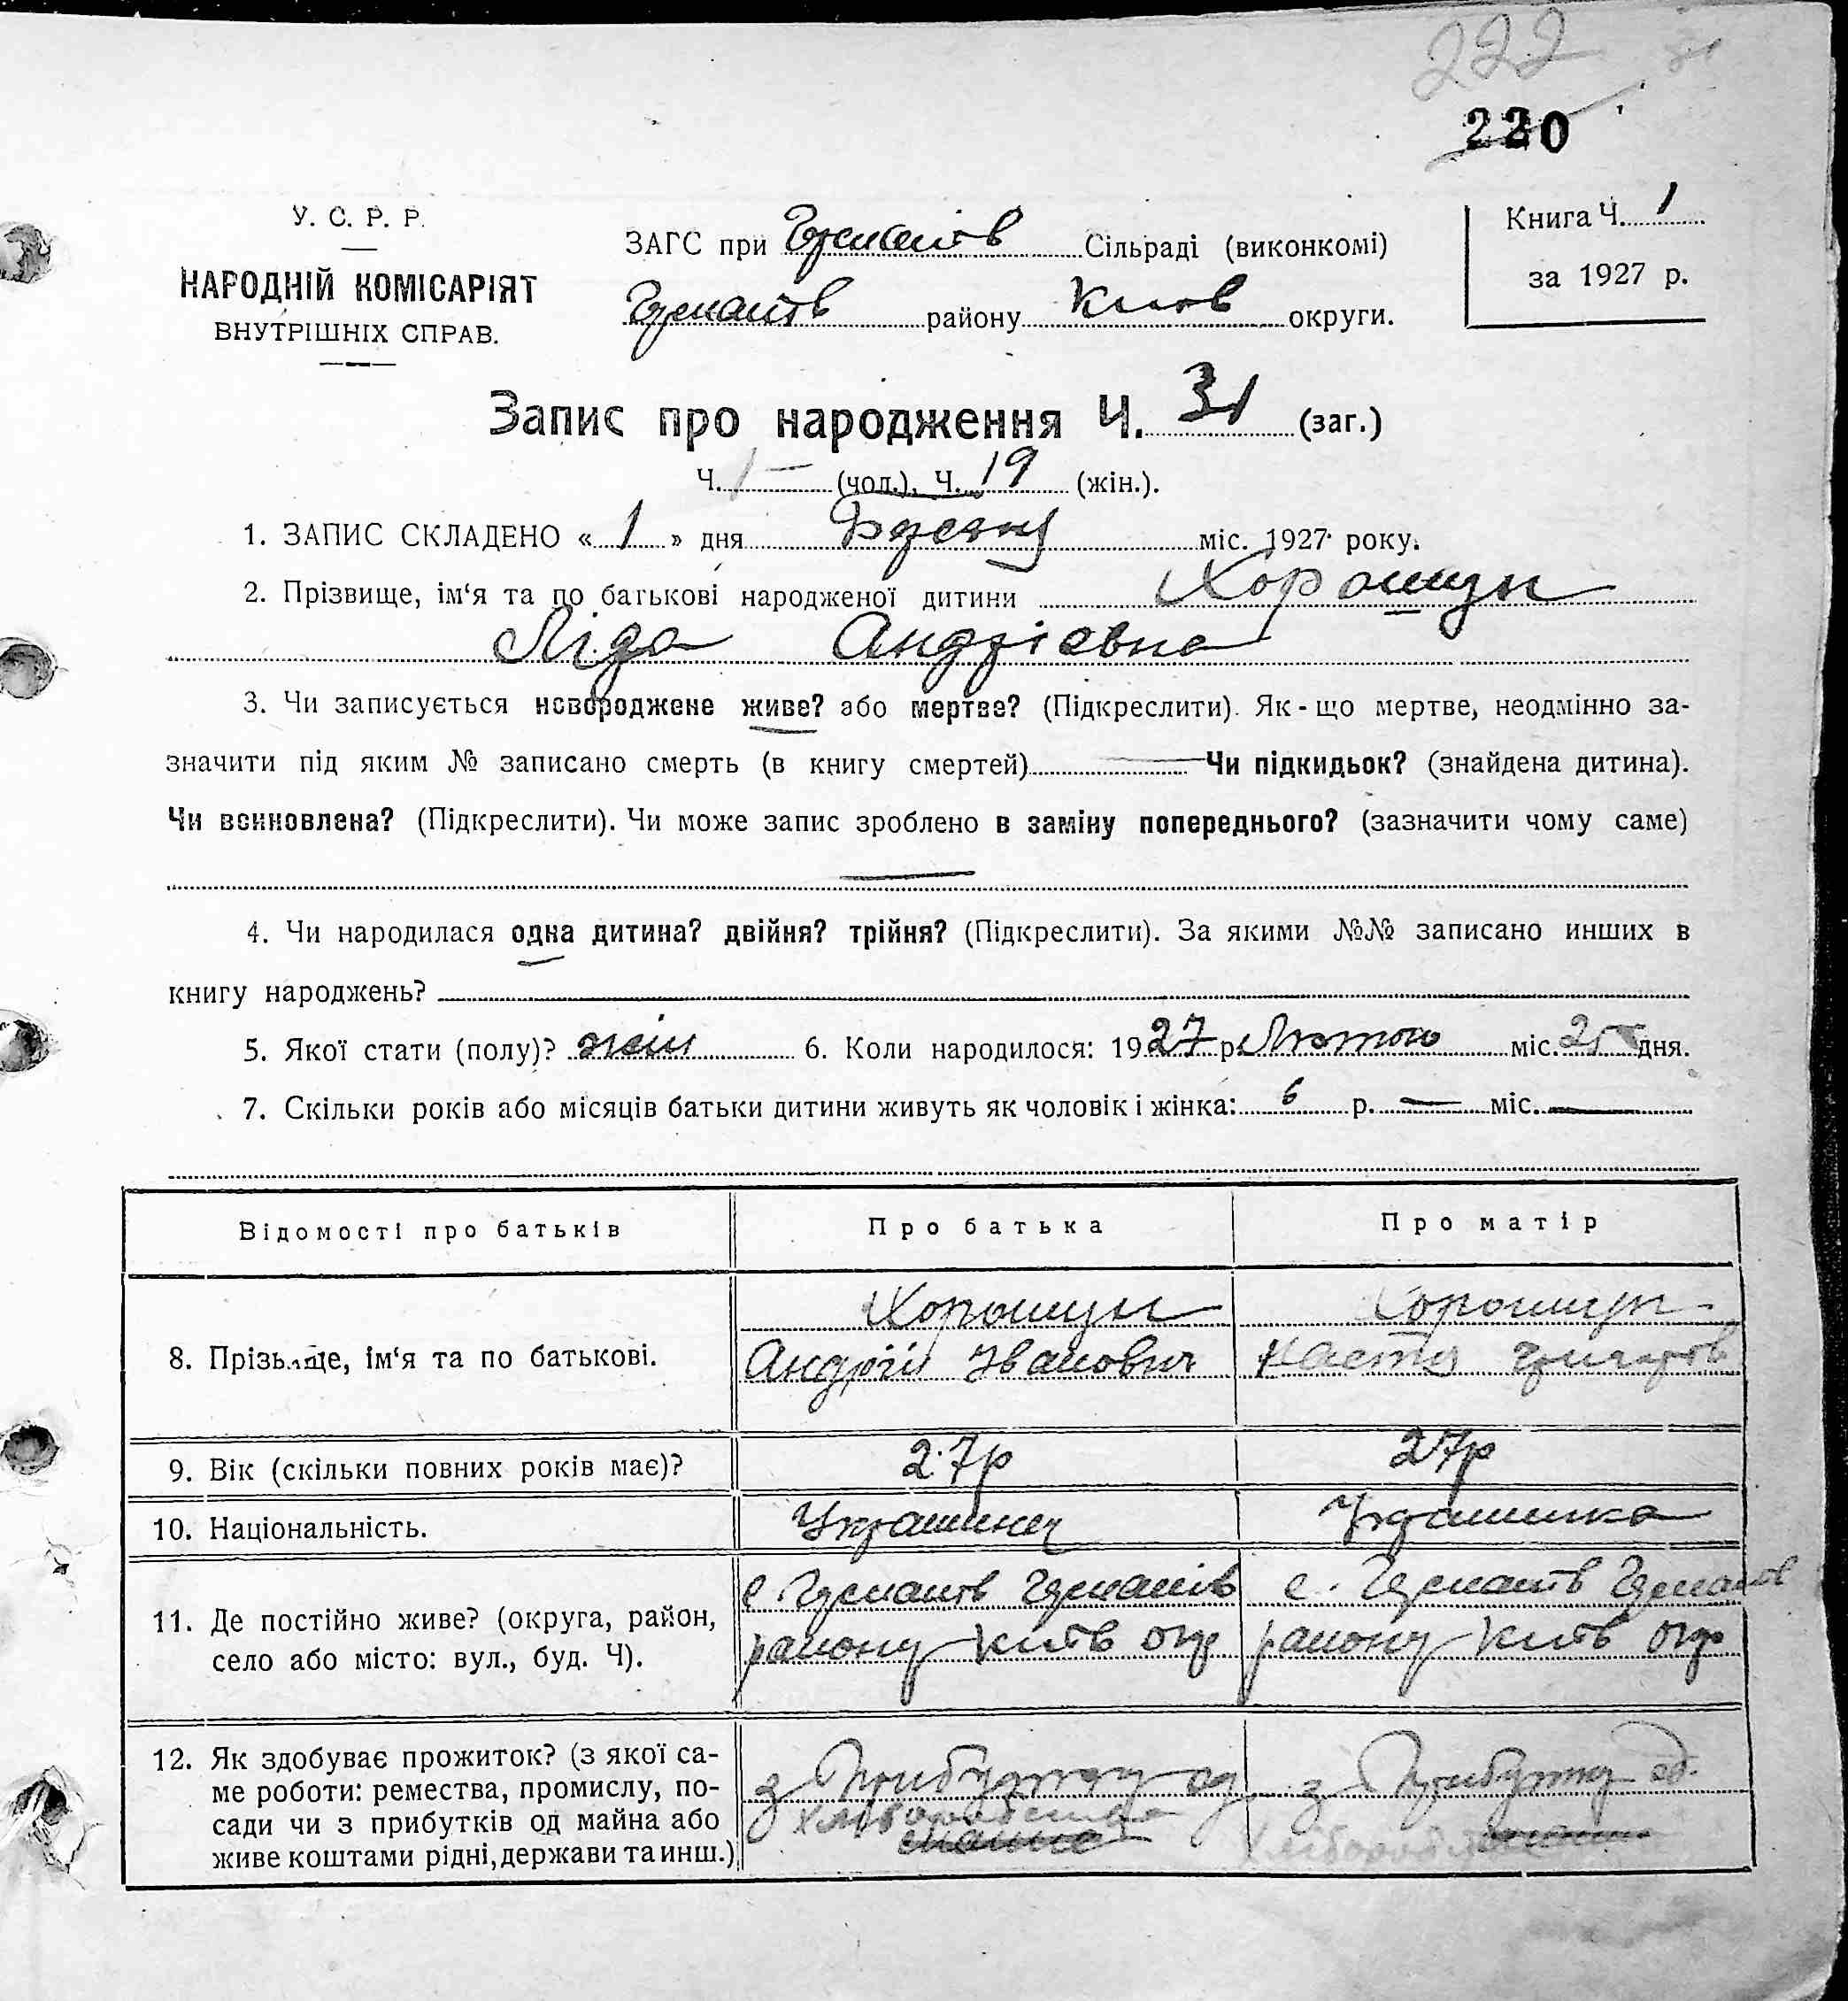 222 31
220
У. С. Р. Р.
НАРОДНІЙ КОМІСАРІЯТ
ВНУТРІШНІХ СПРАВ.
ЗАГС при Гуманів Сільраді (виконкомі)
Гуманів району Київ округи.
Книга Ч. 1
за 1927 р.
Запис про народження Ч. 31 (заг.)
Ч. — (чол.), Ч. 19 (жін.).
1. ЗАПИС СКЛАДЕНО « 1 » дня Березня міс. 1927 року.
2. Прізвище, ім‘я та по батькові народженої дитини Хорошун
Ліда Андрієвна
3. Чи записується новороджене живе? або мертве? (Підкреслити). Як-що мертве, неодмінно за-
значити під яким № записано смерть (в книгу смертей) — Чи підкидьок? (знайдена дитина).
Чи всиновлена? (Підкреслити). Чи може запис зроблено в заміну попереднього? (зазначити чому саме)
—
4. Чи народилася одна дитина? двійня? трійня? (Підкреслити). За якими №№ записано инших в
книгу народжень?
5. Якої стати (полу)? жін 6. Коли народилося: 1927 р. Лютого міс. 25 дня.
7. Скільки років або місяців батьки дитини живуть як чоловік і жінка: 6 р. — міс. —
Відомості про батьків Про батька Про матір
8. Прізвище, ім‘я та по батькові. Хорошун Андрій Іванович Хорошун Настя
9. Вік (скільки повних років має)? 27р 27р
10. Національність. Українець Українка
11. Де постійно живе? (округа, район, с. Гуманів Гуманів с. Гуманів Гуманів
село або місто: вул., буд. Ч). району Київ окр району Київ окр
12. Як здобуває прожиток? (з якої са-
ме роботи: ремества, промислу, по- з Прибутку од з Прибутку од
сади чи з прибутків од майна або хліборобства
живе коштами рідні, держави та инш.)